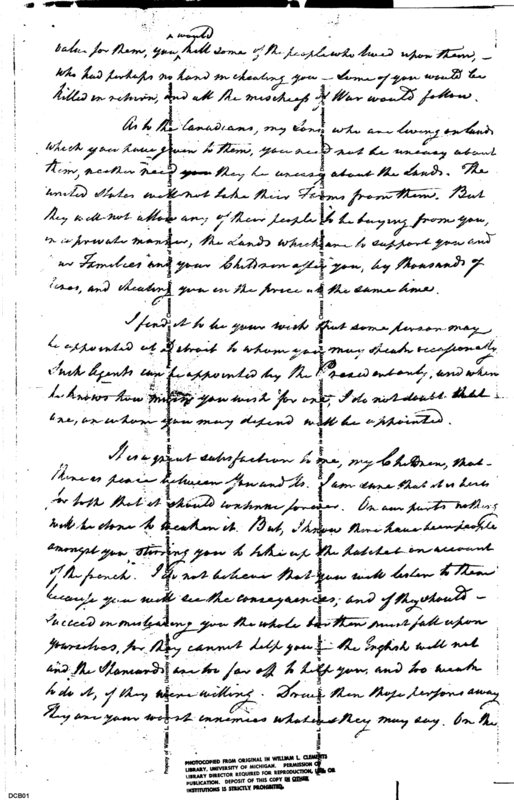 would
value for them, you ^ kill some of the people who lived upon them, –
who had perhaps no hand in cheating you – Some of you would be
killed in return, and all the mischiefs of War would follow.
As to the Canadians, my Sons, who are living on Lands
which you have given to them, you need not be uneasy about
them, neither need you they be uneasy about the Lands. The
united States will not take their Farms from them. But
they will not allow any of their people to be buying from you,
in a private manner, the Lands which are to support you and
our Families and your Children after you, by thousands of
Acres, and cheating you in the price at the same time.
I find it to be your wish that some person may
be appointed at Detroit to whom you may speak occasionally
Such Agents can be appointed by the President only, and when
he knows how much you wish for one, I do not doubt that
one, on whom you may depend will be appointed.
It is a great satisfaction to me, my Children, that
there is peace between You and Us. I am sure that it is best
for both that it should continue forever. On our parts nothing
will be done to weaken it. But, I know there have been people
amongst you stirring you to take up the hatchet on account
of the french. I do not believe that you will listen to them
because you will see the consequences; and if they should –
Succeed in misleading you the whole burthen must fall upon
yourselves, for they cannot help you – the English will not
and the Spaniards are too far off to help you, and too weak
to do it, if they were willing. Drive then those persons away
They are your worst enemies whatever they may say. On the
PHOTOCOPIED FROM ORIGINAL IN WILLIAM L. CLEMENTS
LIBRARY, UNIVERSITY OF MICHIGAN. PERMISSION OF
LIBRARY DIRECTOR REQUIRED FOR REPRODUCTION, USE OR
PUBLICATION. DEPOSIT OF THIS COPY IN OTHER
INSTITUTIONS IS STRICTLY PROHIBITED.
DCB01